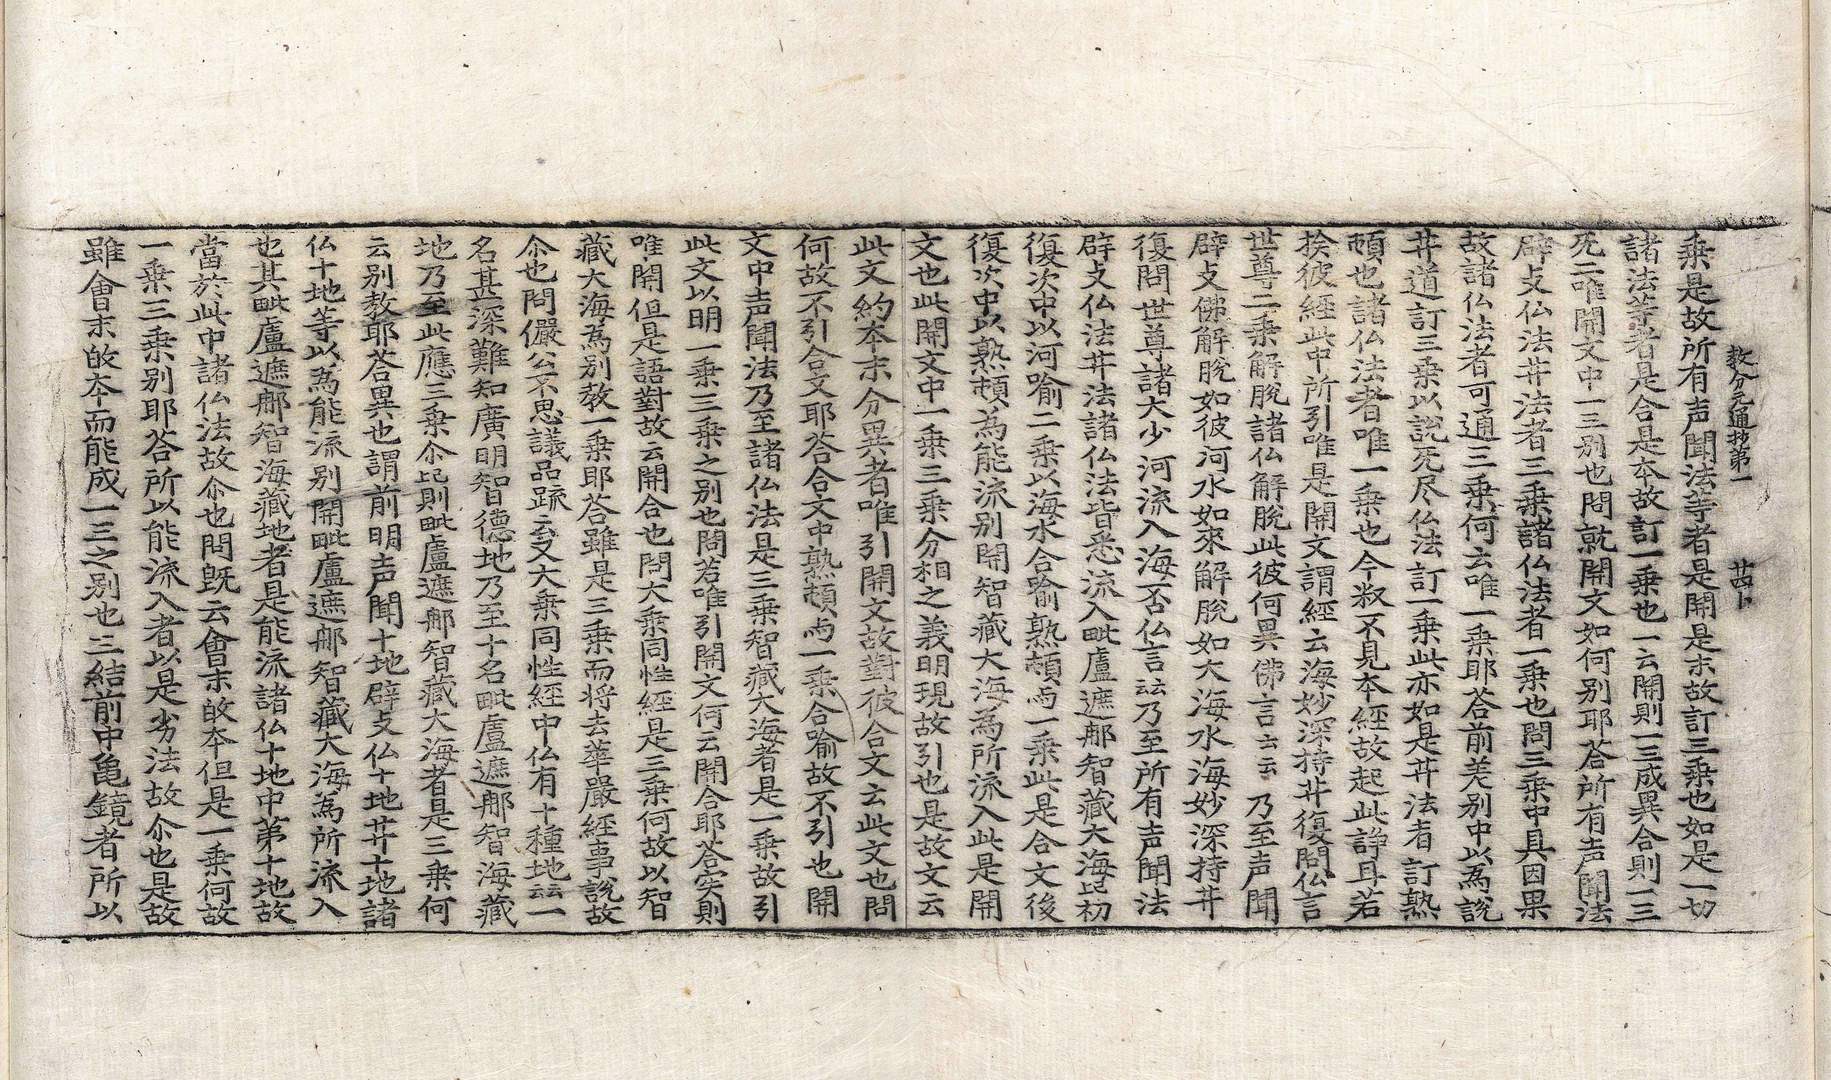 教分記圓通抄第一 卄四卜
乘是故所有声聞法等者是開是末故訂三乘也如是一切
諸法等者是合是本故訂一乘也一云開則一三成異合則一三
旡二唯開文中一三別也問就開文如何別耶荅所有声聞法
辟支仏法井法者三乘諸仏法者一乘也問三乘中具因果
故諸仏法者可通三乘何云唯一乘耶荅前差別中以為說
井道訂三乘以說旡尽仏法訂一乘此亦如是井法者訂熟
頓也諸仏法者唯一乘也今叙不見本經故起此諍耳若
挨彼經此中所引唯是開文謂經云海妙深持井復問仏言
世尊二乘解脫諸仏解脫此彼何異佛言云云乃至声聞
辟支佛解脫如彼河水如來解脫如大海水海妙深持井
復問世尊諸大少河流入海否仏言云云乃至所有声聞法
辟支仏法井法諸仏法皆悉流入毗盧遮那智藏大海昆初
復次中以河喻二乘以海水合喻熟頓与一乘此是合文後
復次中以熟頓為能流別開智藏大海為所流入此是開
文也此開文中一乘三乘分相之義明現故引也是故文云
此文約本末分異者唯引開文故對彼合文云此文也問
何故不引合文耶荅合文中熟頓与一乘合喻故不引也開
文中声聞法乃至諸仏法是三乘智藏大海者是一乘故引
此文以明一乘三乘之別也問若唯引開文何云開合耶荅实則
唯開但是語對故云開合也問大乘同性經是三乘何故以智
藏大海為別教一乘耶荅雖是三乘而将去華嚴經事說故
尒也問儼公不思議品䟽云又大乘同性經中仏有十種地云云一
名甚深難知廣明智德地乃至十名毗盧遮那智海藏
地乃至此應三乘尒昆則毗盧遮那智藏大海者是三乘何
云別教耶荅異也謂前明声聞十地辟支仏十地井十地諸
仏十地等以為能流別開毗盧遮那智藏大海為所流入
也其毗盧遮那智海藏地者是能流諸仏十地中第十地故
當於此中諸仏法故尒也問旣云會末㰤本但是一乘何故
一乘三乘別耶荅所以能流入者以是劣法故尒也是故
雖會末㰤本而能成一三之別也三結前中龜鏡者所以